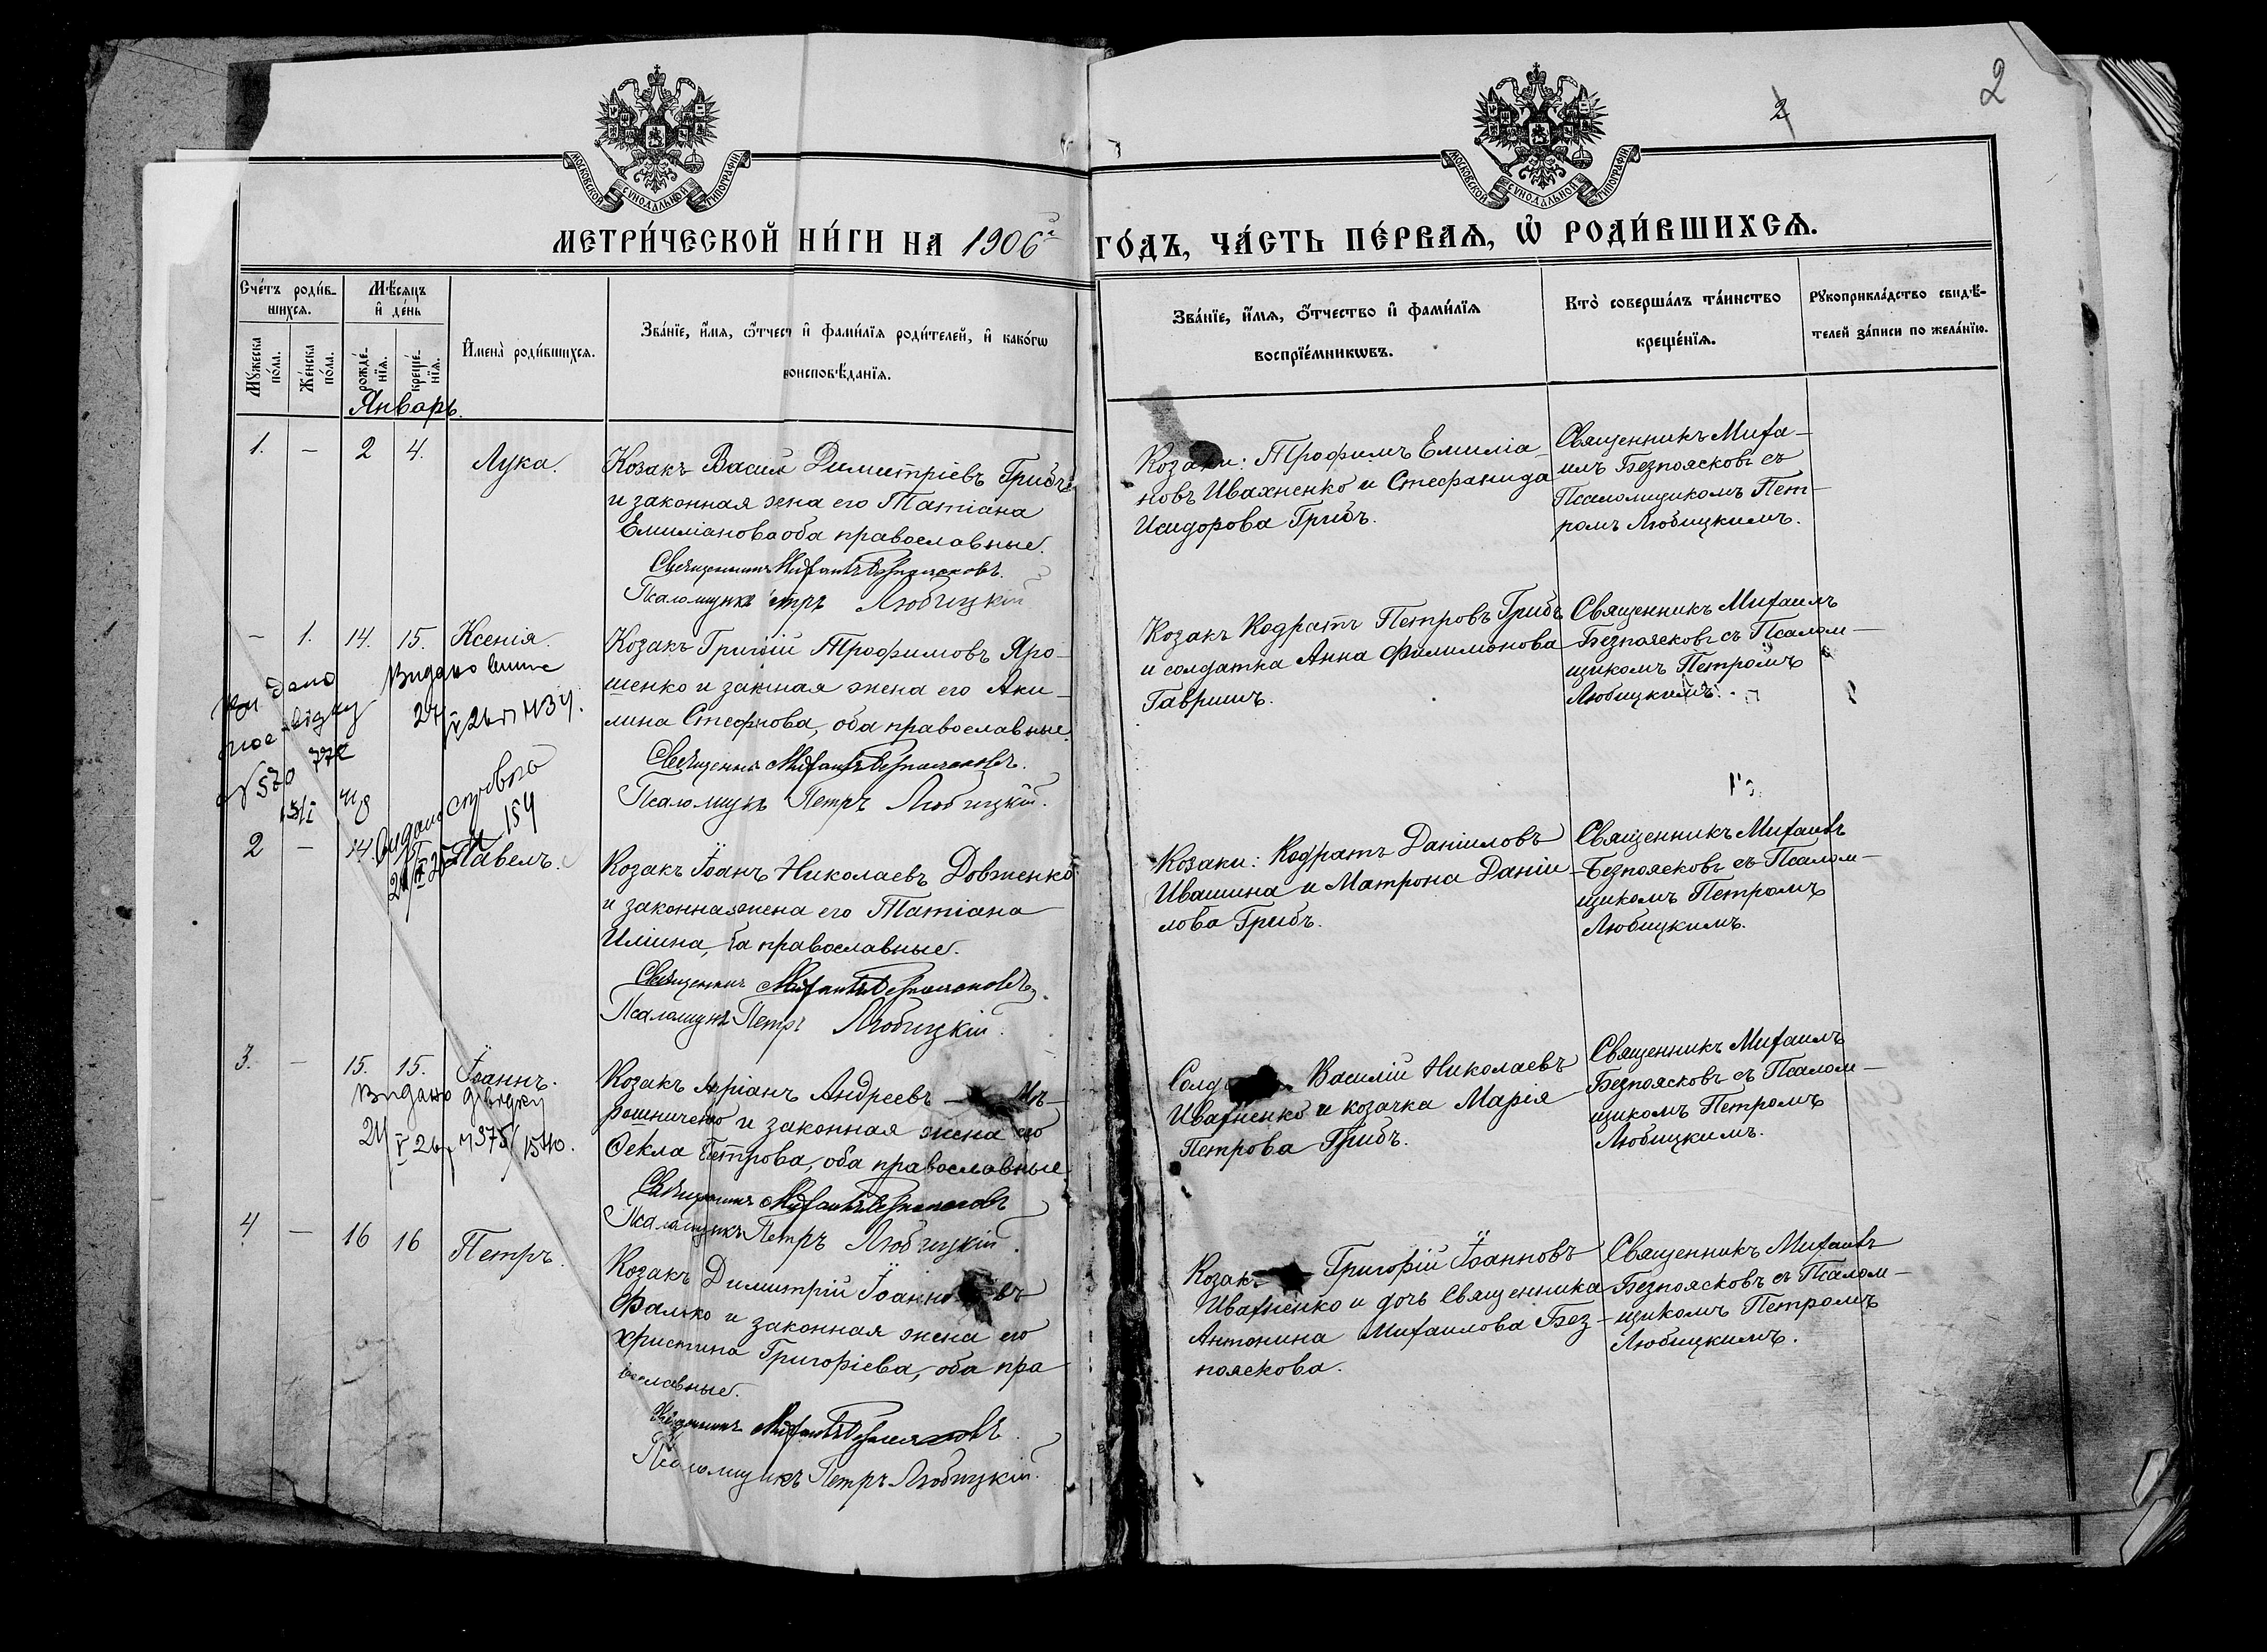 2
2
МОСКОВСКОЙ СУНОДАЛЬНОЙ ТИПОГРАФІИ
МОСКОВСКОЙ СУНОДАЛЬНОЙ ТИПОГРАФІИ
МЕТРИ́ЧЕСКОЙ НИ́ГИ НА 1906й
ГО́ДЪ, ЧА́СТЬ ПЕ́РВАѦ, Ѽ РОДИ́ВШИХСѦ.
Сче́тъ роди́в-
шихсѧ.
Мꙋ́жеска по́ла.
Же́нска по́ла.
Мѣ́сѧцъ и҆ де́нь
рожде́-
нїѧ.
креще́-
нїѧ.
И҆мена̀ роди́вшихсѧ.
Зва́нїе, и҆́мѧ, ѻ҆́тчест и҆ фами́лїѧ роди́телей, и҆ како́гѡ
роисповѣ́данїѧ.
Зва́нїе, и҆́мѧ, ѻ҆́тчество и҆ фами́лїѧ
воспрїе́мникѡвъ.
Кто̀ соверша́лъ та́инство
креще́нїѧ.
Рꙋкоприкла́дство свидѣ́-
телей за́писи по жела́нїю.
Январь.
1. – 2 4. Лука.
Козакъ Васил Димитріевъ Грибъ
и законная жена его Татіана
Емиліанова оба православные.
Священникъ Михаилъ Безпоясковъ.
Псаломщикъ етръ Любицкій
Козаки: Трофимъ Емиліа-
новъ Ивахненко и Стефанида
Исидорова Грибъ.
Священникъ Миха-
илъ Безпоясковъ съ
Псаломщикомъ Пет-
ромъ Любицкимъ.
– 1. 14. 15. Ксенія.
Козакъ Григрій Трофимовъ Яро-
шенко и закнная жена его Аки-
лина Стефнова, оба православные.
Священник Михаилъ Безпоясковъ.
Псаломщикъ Петръ Любицкій.
Козакъ Кодратъ Петровъ Грибъ
и солдатка Анна Филимонова
Гавришъ.
Священникъ Михаилъ
Безпоясковъ съ Псалом-
щикомъ Петромъ
Любицкимъ.
2 – 14. 15 Павелъ.
Козакъ Іоанъ Николаевъ Довженко
и законная жена его Татіана
Иліина, ба православные.
Священникъ Михаилъ Безпоясковъ.
Псаломщикъ Петръ Любицкій.
Козаки: Кодратъ Даніиловъ
Ивашина и Матрона Даніи-
лова Грибъ.
Священникъ Михаилъ
Безпоясковъ съ Псалом-
щикомъ Петромъ
Любицкимъ.
3. – 15. 15. Іоаннъ.
Видано
Козакъ Андреевъ
и законная жена его
Ѳекла Петрова, оба православные
Священникъ Михаилъ Безпоясковъ
Псаломщикъ Петръ Любицкій.
Солд Василій Николаевъ
Ивахненко и козачка Марія
Петрова Грибъ.
Священникъ Михаилъ
Безпоясковъ съ Псалом-
щикомъ Петромъ
Любицкимъ.
4 – 16 16 Петръ.
Козакъ Димитрій Іоанно въ
Фалько и законная жена его
Христина Григоріева, оба пра
вославные.
Михаилъ Безпоясковъ.
Псаломщикъ Петръ Любицкій.
Козакъ Григорій Іоанновъ
Ивахненко и дочь Священника
Антонина Михаилова Без-
пояскова.
Священникъ Михаилъ
Безпоясковъ съ Псалом-
щикомъ Петромъ
Любицкимъ.